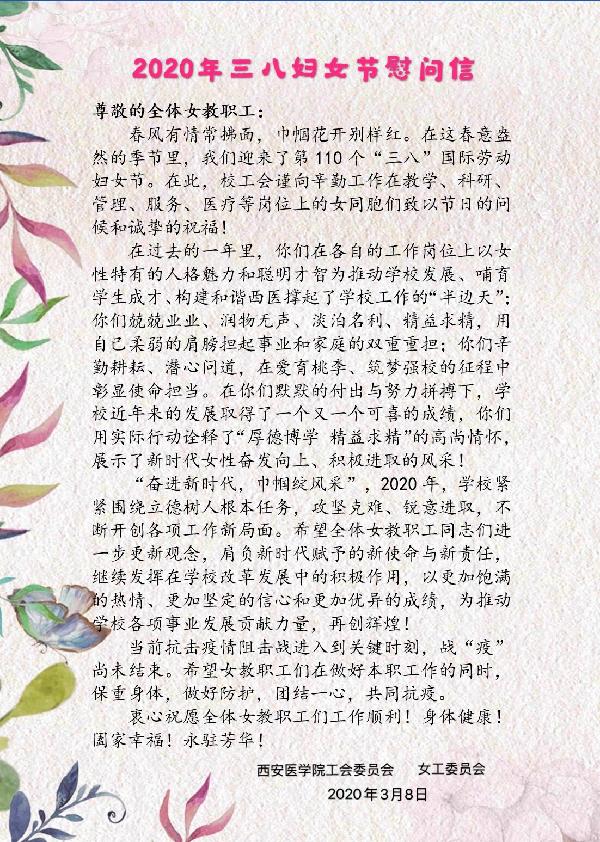 2020年三八妇女节慰问信
尊敬的全体女教职工：
春风有情常拂面，巾帼花开别样红。在这春意盎
然的季节里，我们迎来了第 110 个“三八”国际劳动
妇女节。在此，校工会谨向辛勤工作在教学、科研、
管理、服务、医疗等岗位上的女同胞们致以节日的问
候和诚挚的祝福！
在过去的一年里，你们在各自的工作岗位上以女
性特有的人格魅力和聪明才智为推动学校发展、哺育
学生成才、构建和谐西医撑起了学校工作的“半边天”；
你们兢兢业业、润物无声、淡泊名利、精益求精，用
自己柔弱的肩膀担起事业和家庭的双重重担；你们辛
勤耕耘、潜心问道，在爱育桃李、筑梦强校的征程中
彰显使命担当。在你们默默的付出与努力拼搏下，学
校近年来的发展取得了一个又一个可喜的成绩，你们
用实际行动诠释了“厚德博学 精益求精”的高尚情怀，
展示了新时代女性奋发向上、积极进取的风采！
“奋进新时代，巾帼绽风采”，2020 年，学校紧
紧围绕立德树人根本任务，攻坚克难、锐意进取，不
断开创各项工作新局面。希望全体女教职工同志们进
一步更新观念，肩负新时代赋予的新使命与新责任，
继续发挥在学校改革发展中的积极作用，以更加饱满
的热情、更加坚定的信心和更加优异的成绩，为推动
学校各项事业发展贡献力量，再创辉煌！
当前抗击疫情阻击战进入到关键时刻，战“疫”
尚未结束。希望女教职工们在做好本职工作的同时，
保重身体，做好防护，团结一心，共同抗疫。
衷心祝愿全体女教职工们工作顺利！身体健康！
阖家幸福！永驻芳华！
西安医学院工会委员会 女工委员会
2020 年 3 月 8 日